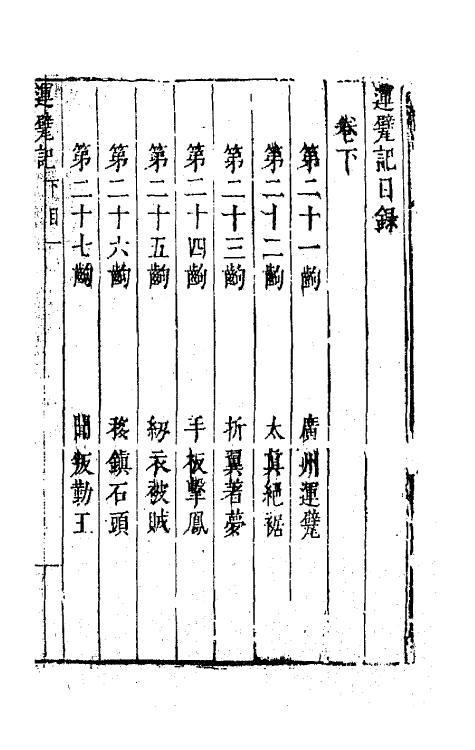 運甓記目錄
卷下
第二十一齣 廣州運甓
第二十二齣 太真絕裾
第二十三齣 折翼著夢
第二十四齣 手板擊鳳
第二十五齣 紉衣被賊
第二十六齣 移鎮石頭
第二十七齣 聞叛勤王
運甓記 下目 一